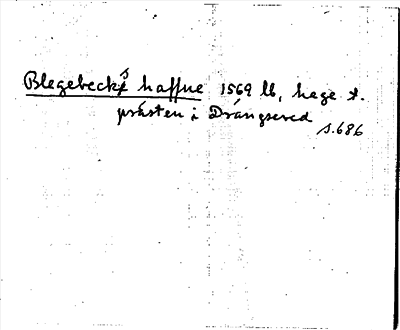 Blegebecks haffue 1569 lb, hage t.
prästen i Drängsered
s.686